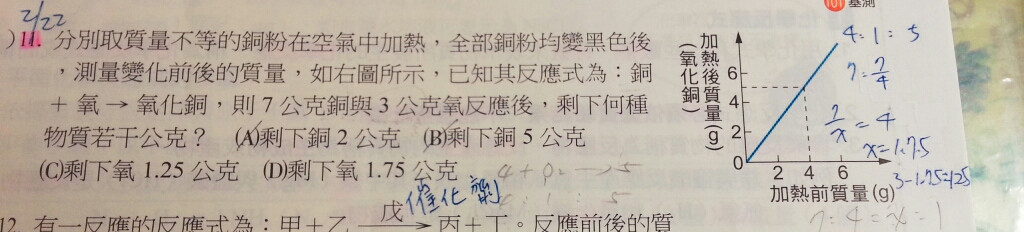 2/22
101 基測
)11. 分別取質量不等的銅粉在空氣中加熱，全部銅粉均變黑色後
，測量變化前後的質量，如右圖所示，已知其反應式為：銅
＋ 氧 → 氧化銅，則 7 公克銅與 3 公克氧反應後，剩下何種
物質若干公克？ (A)剩下銅 2 公克 (B)剩下銅 5 公克
(C)剩下氧 1.25 公克 (D)剩下氧 1.75 公克
加熱後質量(g)
（氧化銅）
6
4
2
0
2 4 6
加熱前質量(g)
4:1=5
7=7/4
7/x=4
x=1.75
3-1.75=1.25
7=4=x=1
戊 催化劑
12. 有一反應的反應式為：甲＋乙 → 丙＋丁。反應前後的質